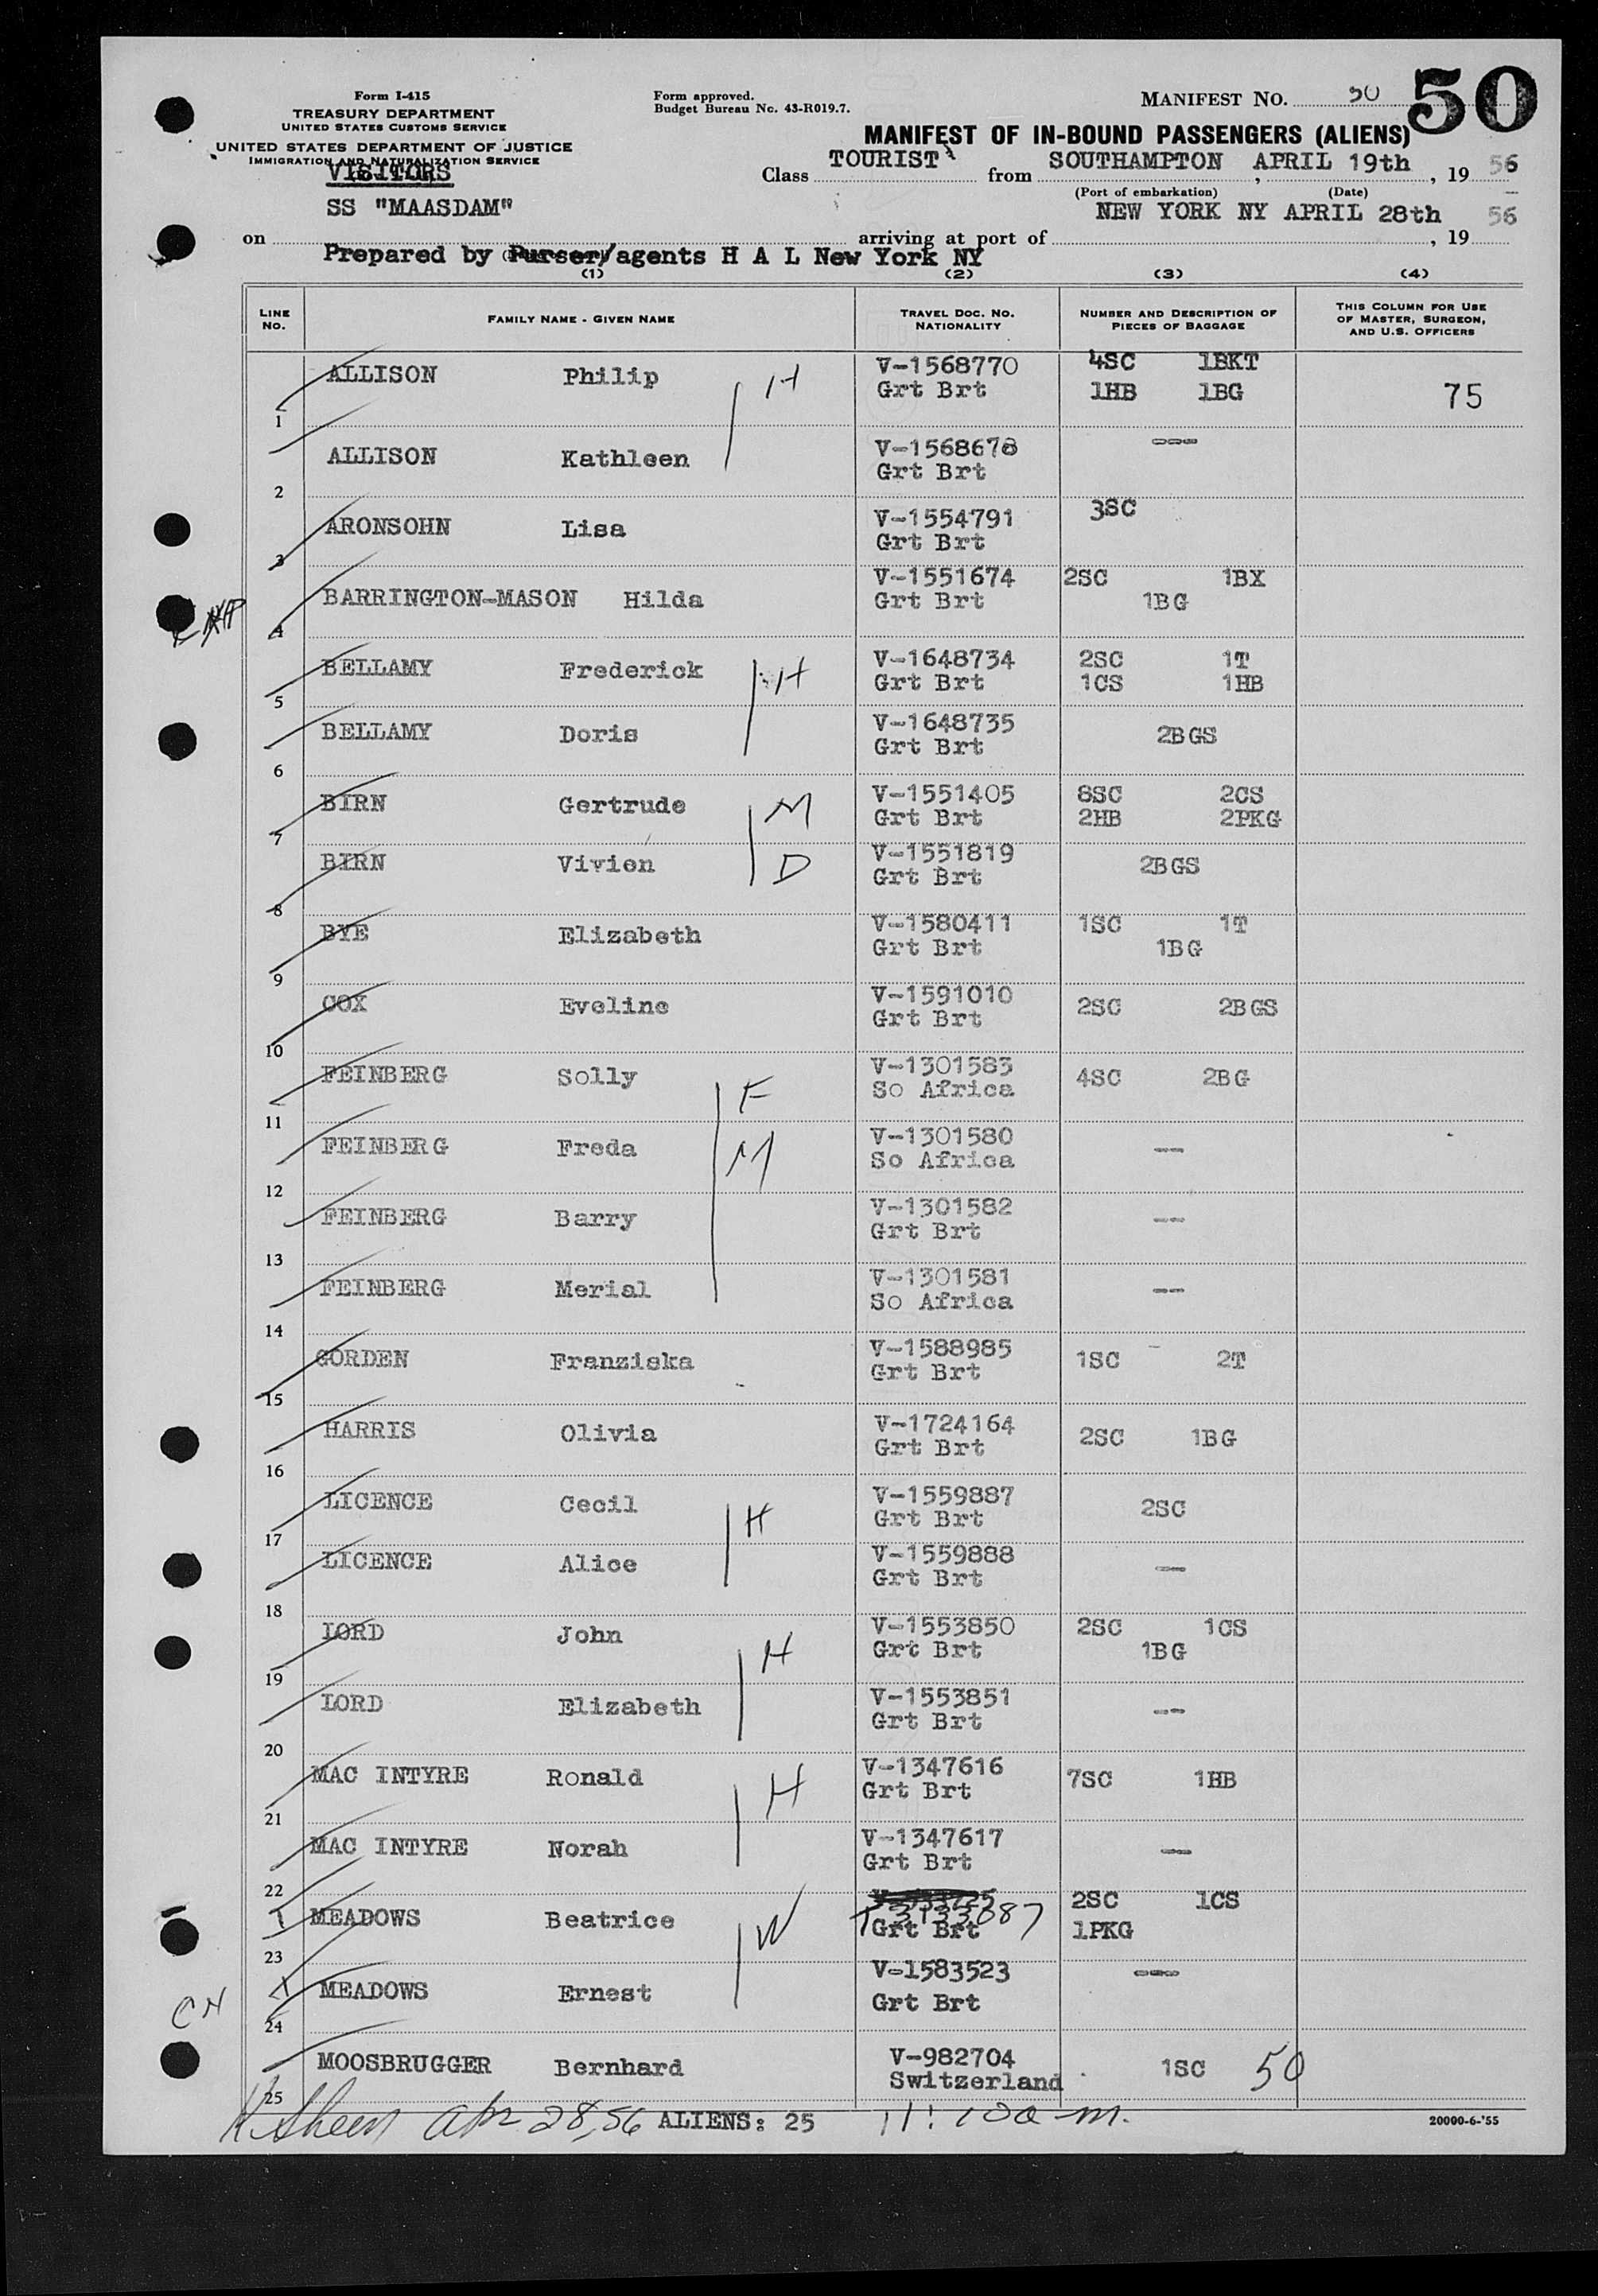 Form I-415
TREASURY DEPARTMENT
UNITED STATES CUSTOMS SERVICE
UNITED STATES DEPARTMENT OF JUSTICE
IMMIGRATION AND NATURALIZATION SERVICE
VISITORS
Form approved.
Budget Bureau No. 43-R019.7.
MANIFEST NO. 50 50
MANIFEST OF IN-BOUND PASSENGERS (ALIENS)
Class TOURIST from SOUTHAMPTON , APRIL 19th , 19 56
(Port of embarkation) (Date)
on SS "MAASDAM" arriving at port of NEW YORK NY APRIL 28th , 19 56
Prepared by Purser/agents H A L New York NY
(1) (2) (3) (4)
LINE NO. FAMILY NAME - GIVEN NAME TRAVEL DOC. NO. NATIONALITY NUMBER AND DESCRIPTION OF PIECES OF BAGGAGE THIS COLUMN FOR USE OF MASTER, SURGEON, AND U.S. OFFICERS
1 ALLISON Philip H V-1568770 4SC 1BKT
Grt Brt 1HB 1BG 75
2 ALLISON Kathleen V-1568678 ---
Grt Brt
3 ARONSOHN Lisa V-1554791 3SC
Grt Brt
4 BARRINGTON-MASON Hilda V-1551674 2SC 1BX
Grt Brt 1BG
5 BELLAMY Frederick H V-1648734 2SC 1T
Grt Brt 1CS 1HB
6 BELLAMY Doris V-1648735 2BGS
Grt Brt
7 BIRN Gertrude M V-1551405 8SC 2CS
Grt Brt 2HB 2PKG
8 BIRN Vivien D V-1551819 2BGS
Grt Brt
9 BYE Elizabeth V-1580411 1SC 1T
Grt Brt 1BG
10 COX Eveline V-1591010 2SC 2BGS
Grt Brt
11 FEINBERG Solly F V-1301583 4SC 2BG
So Africa
12 FEINBERG Freda M V-1301580 --
So Africa
13 FEINBERG Barry V-1301582 --
Grt Brt
14 FEINBERG Merial V-1301581 --
So Africa
15 GORDEN Franziska V-1588985 1SC 2T
Grt Brt
16 HARRIS Olivia V-1724164 2SC 1BG
Grt Brt
17 LICENCE Cecil H V-1559887 2SC
Grt Brt
18 LICENCE Alice V-1559888 --
Grt Brt
19 LORD John H V-1553850 2SC 1CS
Grt Brt 1BG
20 LORD Elizabeth V-1553851 --
Grt Brt
21 MAC INTYRE Ronald H V-1347616 7SC 1HB
Grt Brt
22 MAC INTYRE Norah V-1347617 --
Grt Brt
23 MEADOWS Beatrice W 2SC 1CS
Grt Brt 1PKG
24 MEADOWS Ernest V-1583523 ---
Grt Brt
25 MOOSBRUGGER Bernhard V-982704 1SC 50
Switzerland
Apr 28, 56 ALIENS: 25 20000-6-'55